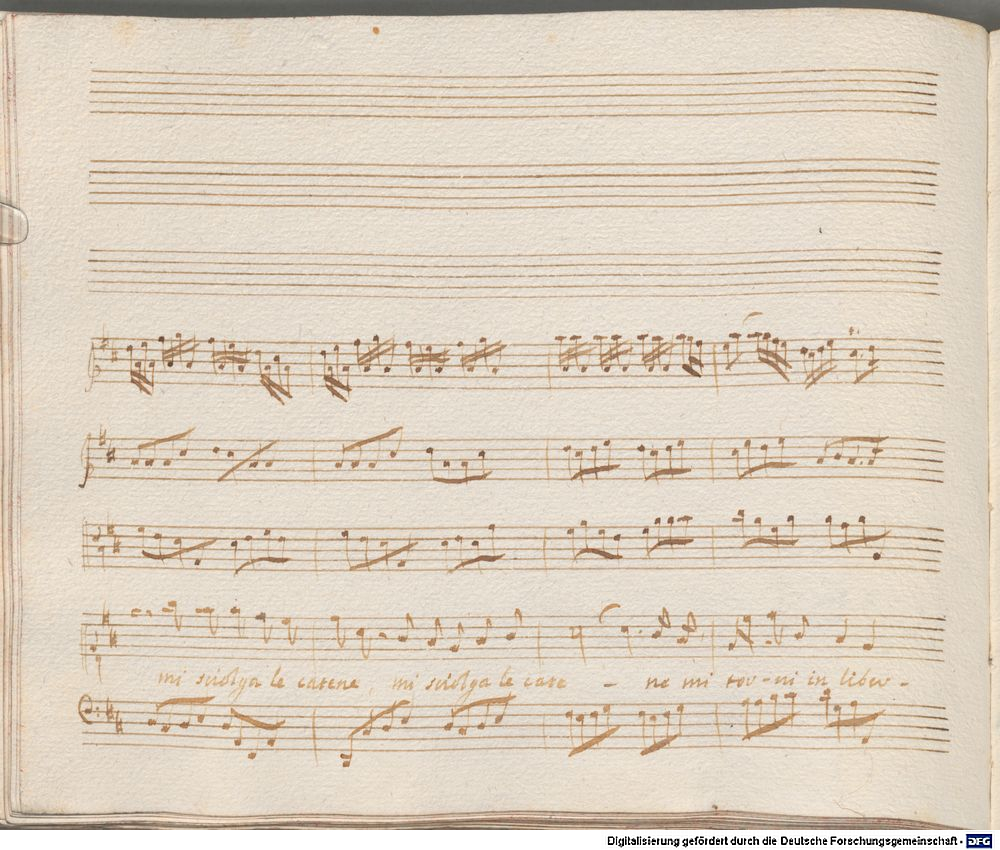 mi sciolga le catene, mi sciolga le cate - ne mi tor-ni in liber-
Digitalisierung gefördert durch die Deutsche Forschungsgemeinschaft - DFG